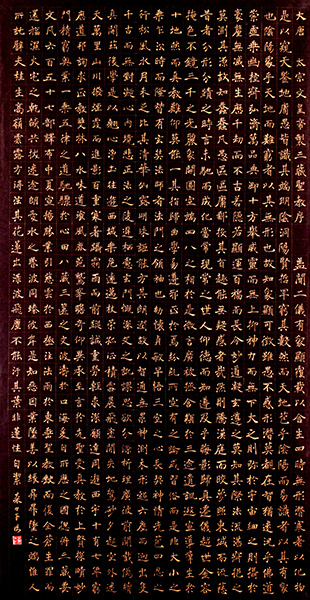 大唐 太宗文皇帝製三藏聖教序 蓋聞二儀有象顯覆載以含生四時無形潛寒暑以化物
是以窺天鑒地庸愚皆識其端明陰洞陽賢哲罕窮其數然而天地苞乎陰陽而易識者以其有象
也陰陽處乎天地而難窮者以其無形也故知象顯可徵雖愚不惑形潛莫覩在智猶迷況乎佛道
崇虛乘幽控寂弘濟萬品典御十方舉威靈而無上抑神力而無下大之則彌於宇宙細之則攝於
豪釐無滅無生歷千劫而不古若隱若顯運百福而長今妙道凝玄遵之莫知其際法流湛寂挹之
莫測其源故知蠢蠢凡愚區區庸鄙投其旨趣能無疑惑者哉然則大教之興基乎西土騰漢庭而皎夢照東域而流慈
昔者分形分跡之時言未馳而成化當常現常之世人仰德而知遵及乎晦影歸真遷儀越世金容
掩色不鏡三千之光麗象開圖空端四八之相於是微言廣被拯含類於三途遺訓遐宣導群生於
十地然而真教難仰莫能一其指歸曲學易遵邪正於焉紛糺所以空有之論或習俗而是非大小之
乘乍沿時而隆替有玄奘法師者法門之領袖也幼懷貞敏早悟三空之心長契神情先苞四忍之
行松風水月未足比其清華仙露明珠詎能方其朗潤故以智通無累神測未形超六塵而迥出隻
千古而無對凝心內境悲正法之陵遲栖慮玄門慨深文之訛謬思欲分條析理廣彼前聞截偽續
真開茲後學是以翹心淨土往遊西域乘危遠邁杖策孤征積雪晨飛途間失地驚砂夕起空外迷
天萬里山川撥煙霞而進影百重寒暑躡霜雨而前蹤誠重勞輕求深願達周遊西宇十有七年窮
歷道邦詢求正教雙林八水味道飡風鹿苑鷲峯瞻奇仰異承至言於先聖受真教於上賢探賾妙
門精窮奧業一乘五律之道馳驟於心田八藏三篋之文波濤於口海爰自所歷之國總將三藏要
文凡六百五十七部譯布中夏宣揚勝業引慈雲於西極注法雨於東垂聖教缺而復全蒼生罪而
還福濕火宅之乾焰共拔迷途朗愛水之昏波同臻彼岸是知惡因業墜善以緣昇昇墜之端惟人
所託譬夫桂生高嶺雲露方得泫其花蓮出淥波飛塵不能汙其葉非蓮性自潔